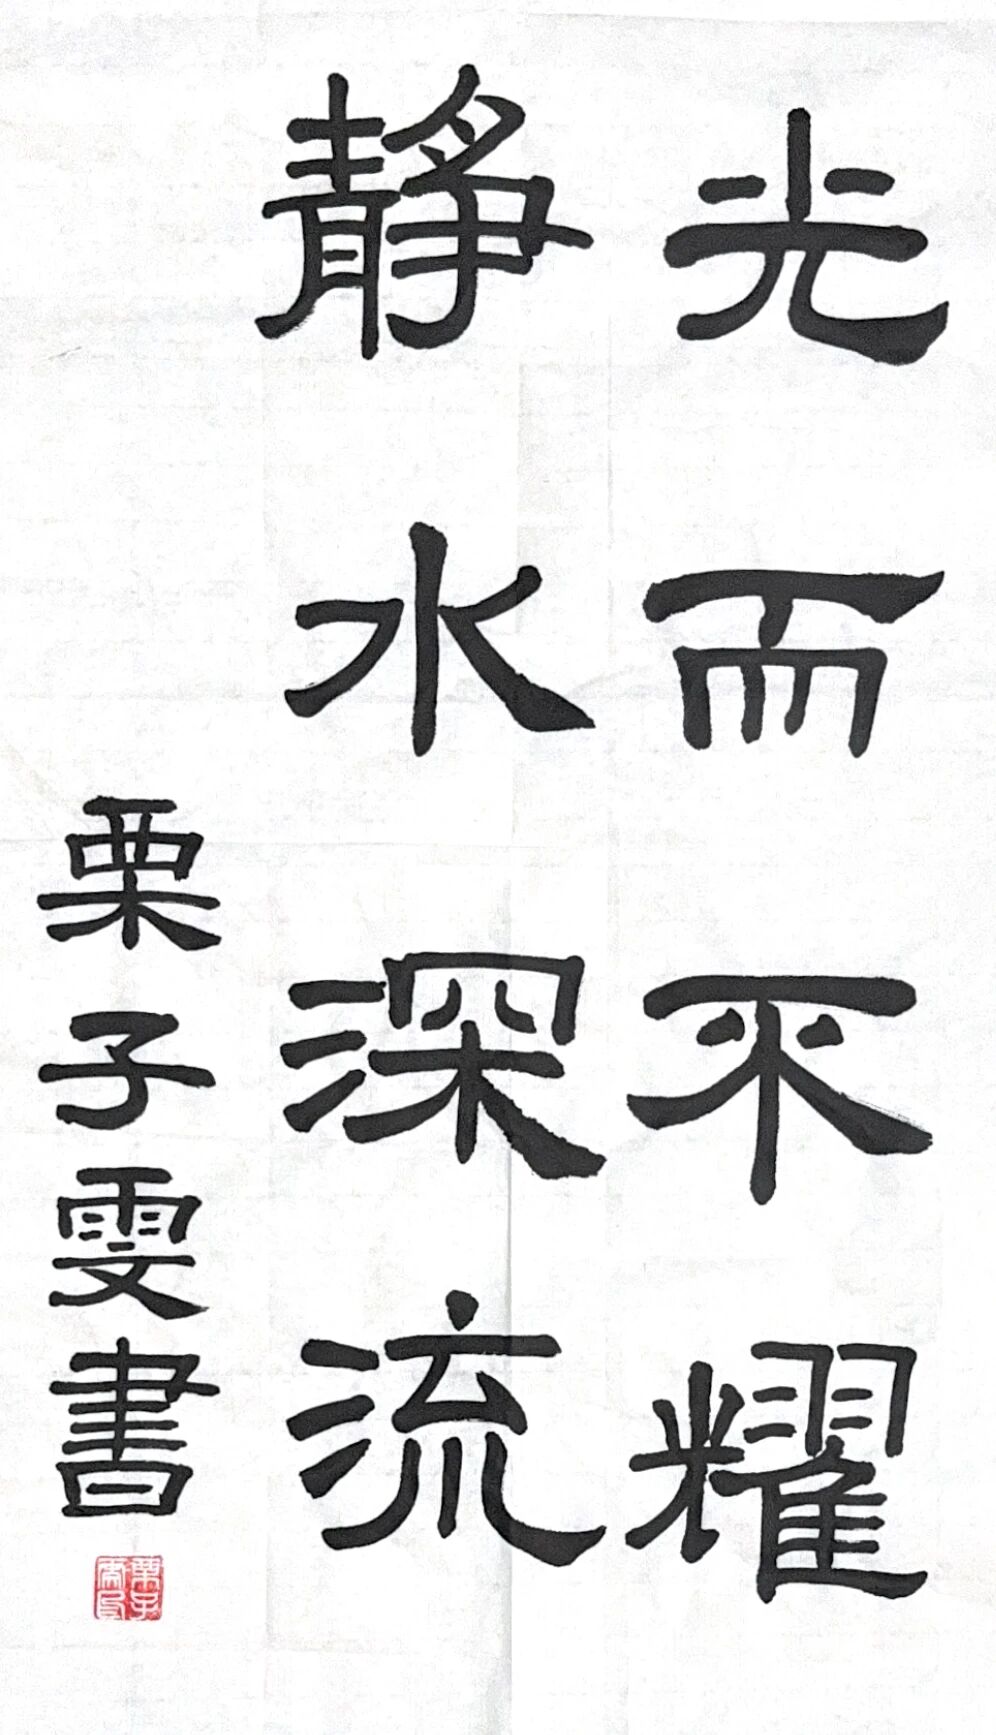 光而不耀
静水深流
栗子雯書